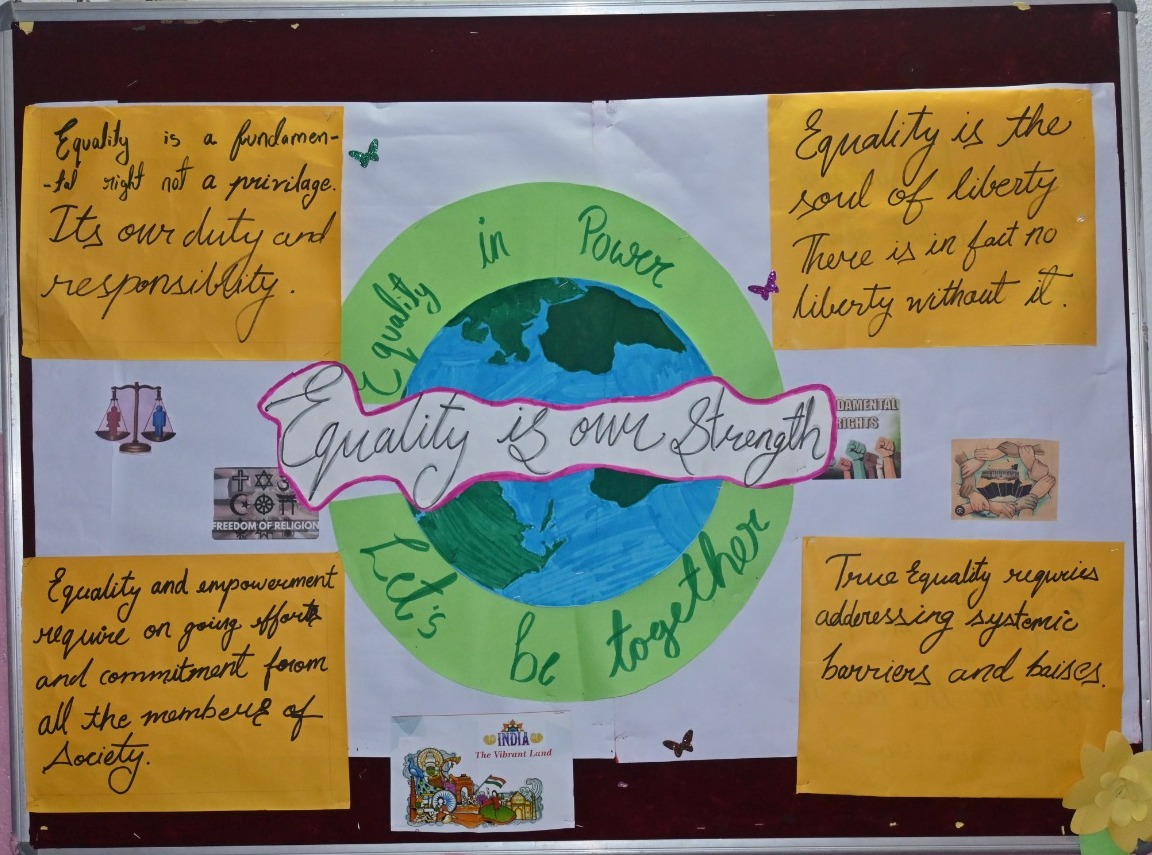 Equality is a fundamen-
-tal right not a privilage.
Its our duty and
responsiblity.
Equality is the
soul of liberty
There is in fact no
liberty without it.
Equality in Power
Equality is our Strength
Let's be together
DAMENTAL
RIGHTS
FREEDOM OF RELIGION
Equality and empowerment
require on going efforts
and commitment forom
all the members of
Society.
True Equality requries
addressing systemic
barriers and baises.
INDIA
The Vibrant Land